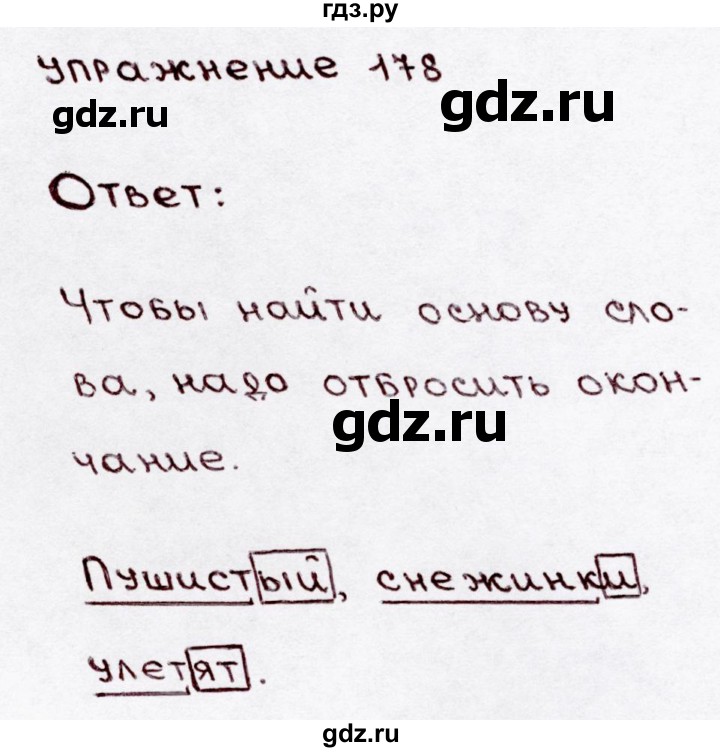 гдз.ру
упражнение 178
gdz.ru
gdz.ru
Ответ:
Чтобы найти основу сло-
ва, надо отбросить окон-
gdz.ru
чание.
Пушистый, снежинки,
улетят.
gdz.ru